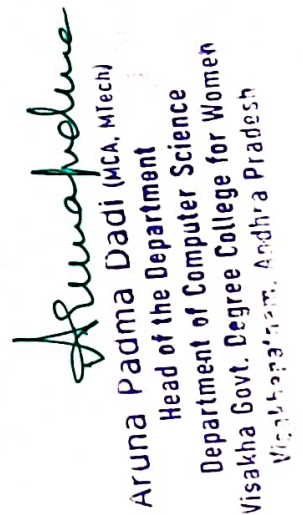 Arunapadma
Aruna Padma Dadi (MCA, MTech)
Head of the Department
Department of Computer Science
Visakha Govt. Degree College for Women
Visakhapatnam, Andhra Pradesh